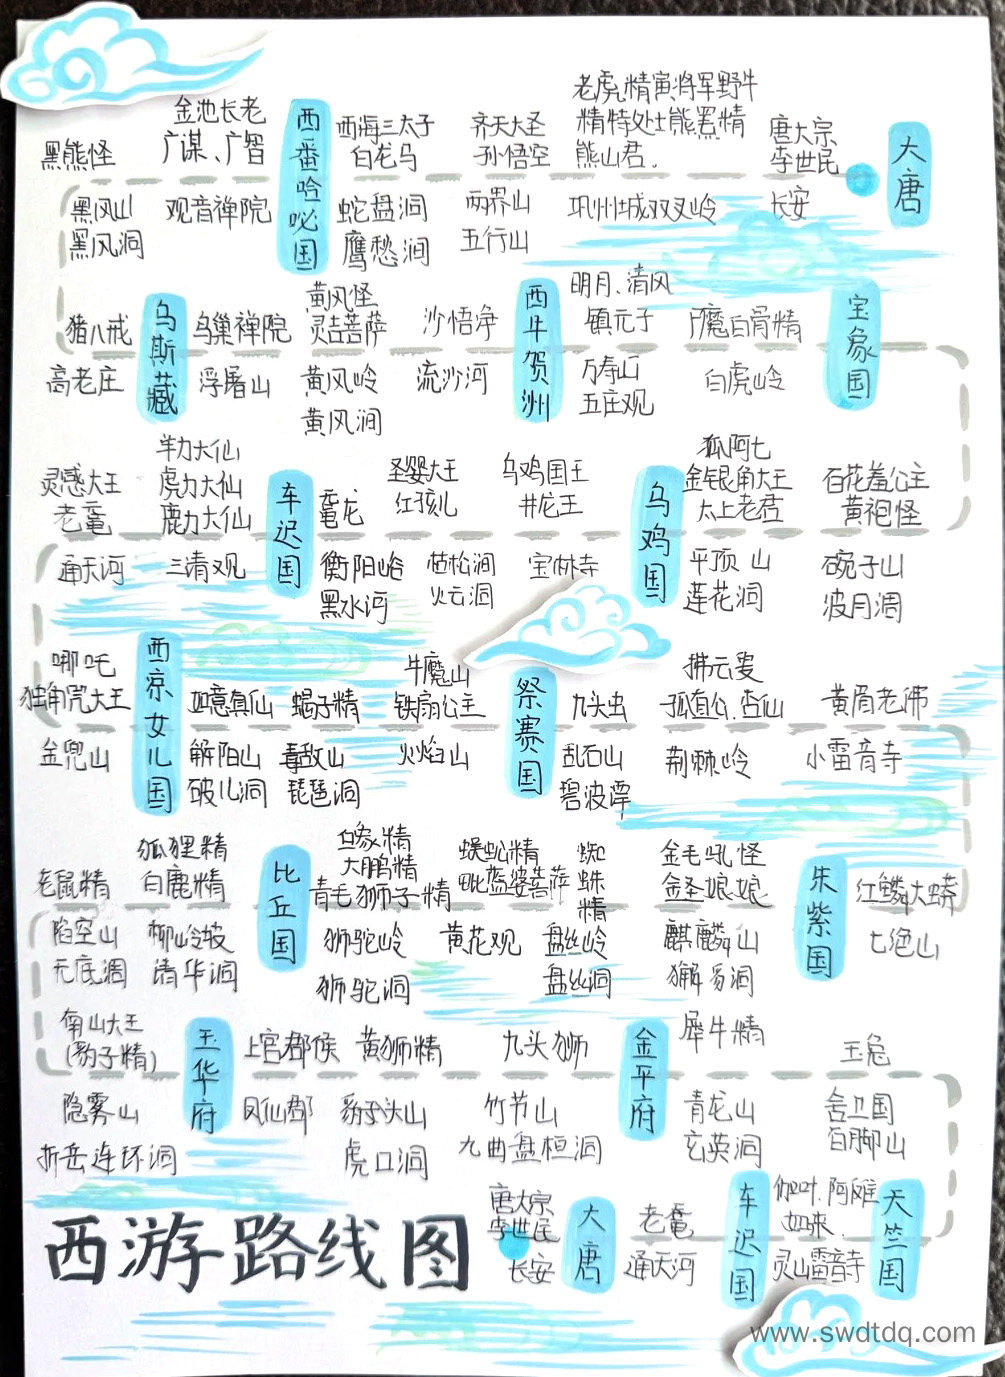 金池长老
老虎精寅将军野牛
黑熊怪
广谋、广智
西番哈咇国
西海三太子
白龙马
齐天大圣
孙悟空
精特处士熊罴精
熊山君.
唐太宗
李世民
大唐
黑风山
黑风洞
观音禅院
蛇盘涧
鹰愁涧
两界山
五行山
巩州城双叉岭
长安
猪八戒
乌斯藏
乌巢禅院
黄风怪
灵吉菩萨
沙悟净
西牛贺洲
明月、清风
镇元子
尸魔白骨精
宝象国
高老庄
浮屠山
黄风岭
黄风洞
流沙河
万寿山
五庄观
白虎岭
灵感大王
老鼋
羊力大仙
虎力大仙
鹿力大仙
车迟国
鼍龙
圣婴大王
红孩儿
乌鸡国王
井龙王
乌鸡国
狐阿七
金银角大王
太上老君
百花羞公主
黄袍怪
通天河
三清观
衡阳峪
黑水河
枯松涧
火云洞
宝林寺
平顶山
莲花洞
碗子山
波月洞
哪吒
独角兕大王
西凉女儿国
如意真仙
蝎子精
牛魔山
铁扇公主
祭赛国
九头虫
拂元叟
孤直公.杏仙
黄眉老佛
金兜山
解阳山
破儿洞
毒敌山
琵琶洞
火焰山
乱石山
碧波潭
荆棘岭
小雷音寺
老鼠精
狐狸精
白鹿精
比丘国
白象精
大鹏精
青毛狮子精
蜈蚣精
毗蓝婆菩萨
蜘蛛精
金毛吼怪
金圣娘娘
朱紫国
红鳞大蟒
陷空山
无底洞
柳岭坡
清华洞
狮驼岭
狮驼洞
黄花观
盘丝岭
盘丝洞
麒麟山
獬豸洞
七绝山
南山大王
(豹子精)
玉华府
上官郡侯
黄狮精
九头狮
金平府
犀牛精
玉兔
隐雾山
折岳连环洞
凤仙郡
豹头山
虎口洞
竹节山
九曲盘桓洞
青龙山
玄英洞
舍卫国
百脚山
西游路线图
唐太宗
李世民
长安
大唐
老鼋
通天河
车迟国
伽叶.阿傩
如来.
灵山雷音寺
天竺国
www.swdtdq.com